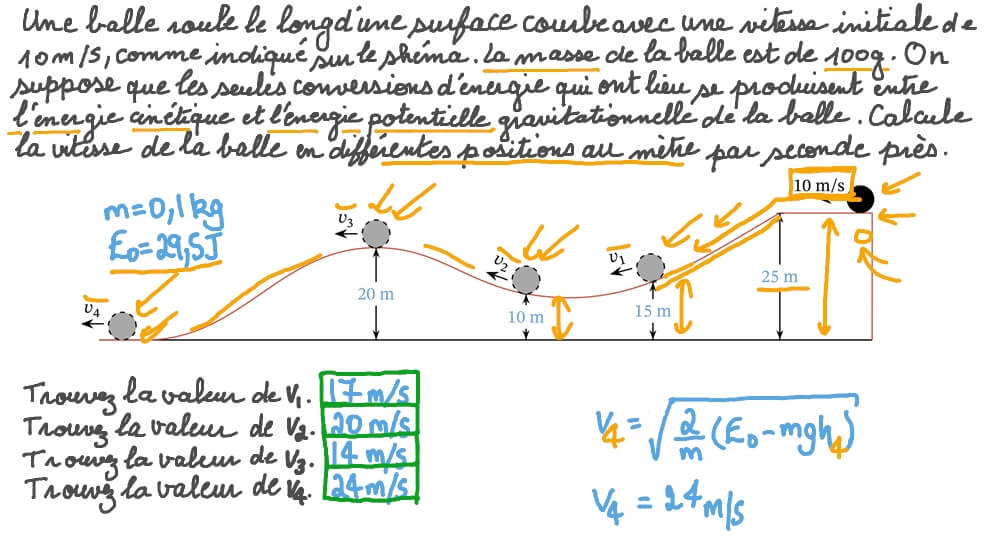 Une balle roule le long d'une surface courbe avec une vitesse initiale de
10 m/s, comme indiqué sur le shéma. La masse de la balle est de 100g. On
suppose que les seules conversions d'énergie qui ont lieu se produisent entre
l'énergie cinétique et l'énergie potentielle gravitationnelle de la balle. Calcule
la vitesse de la balle en différentes positions au mètre par seconde près.
10 m/s
m=0,1 kg
E₀=29,5J
v₃
v₂
v₁
0
25 m
20 m
10 m
15 m
v₄
Trouvez la valeur de v₁. 17 m/s
Trouvez la valeur de v₂. 20 m/s
Trouvez la valeur de v₃. 14 m/s
Trouvez la valeur de v₄. 24 m/s
v₄ = √(2/m (E₀ - mgh₄))
v₄ = 24 m/s